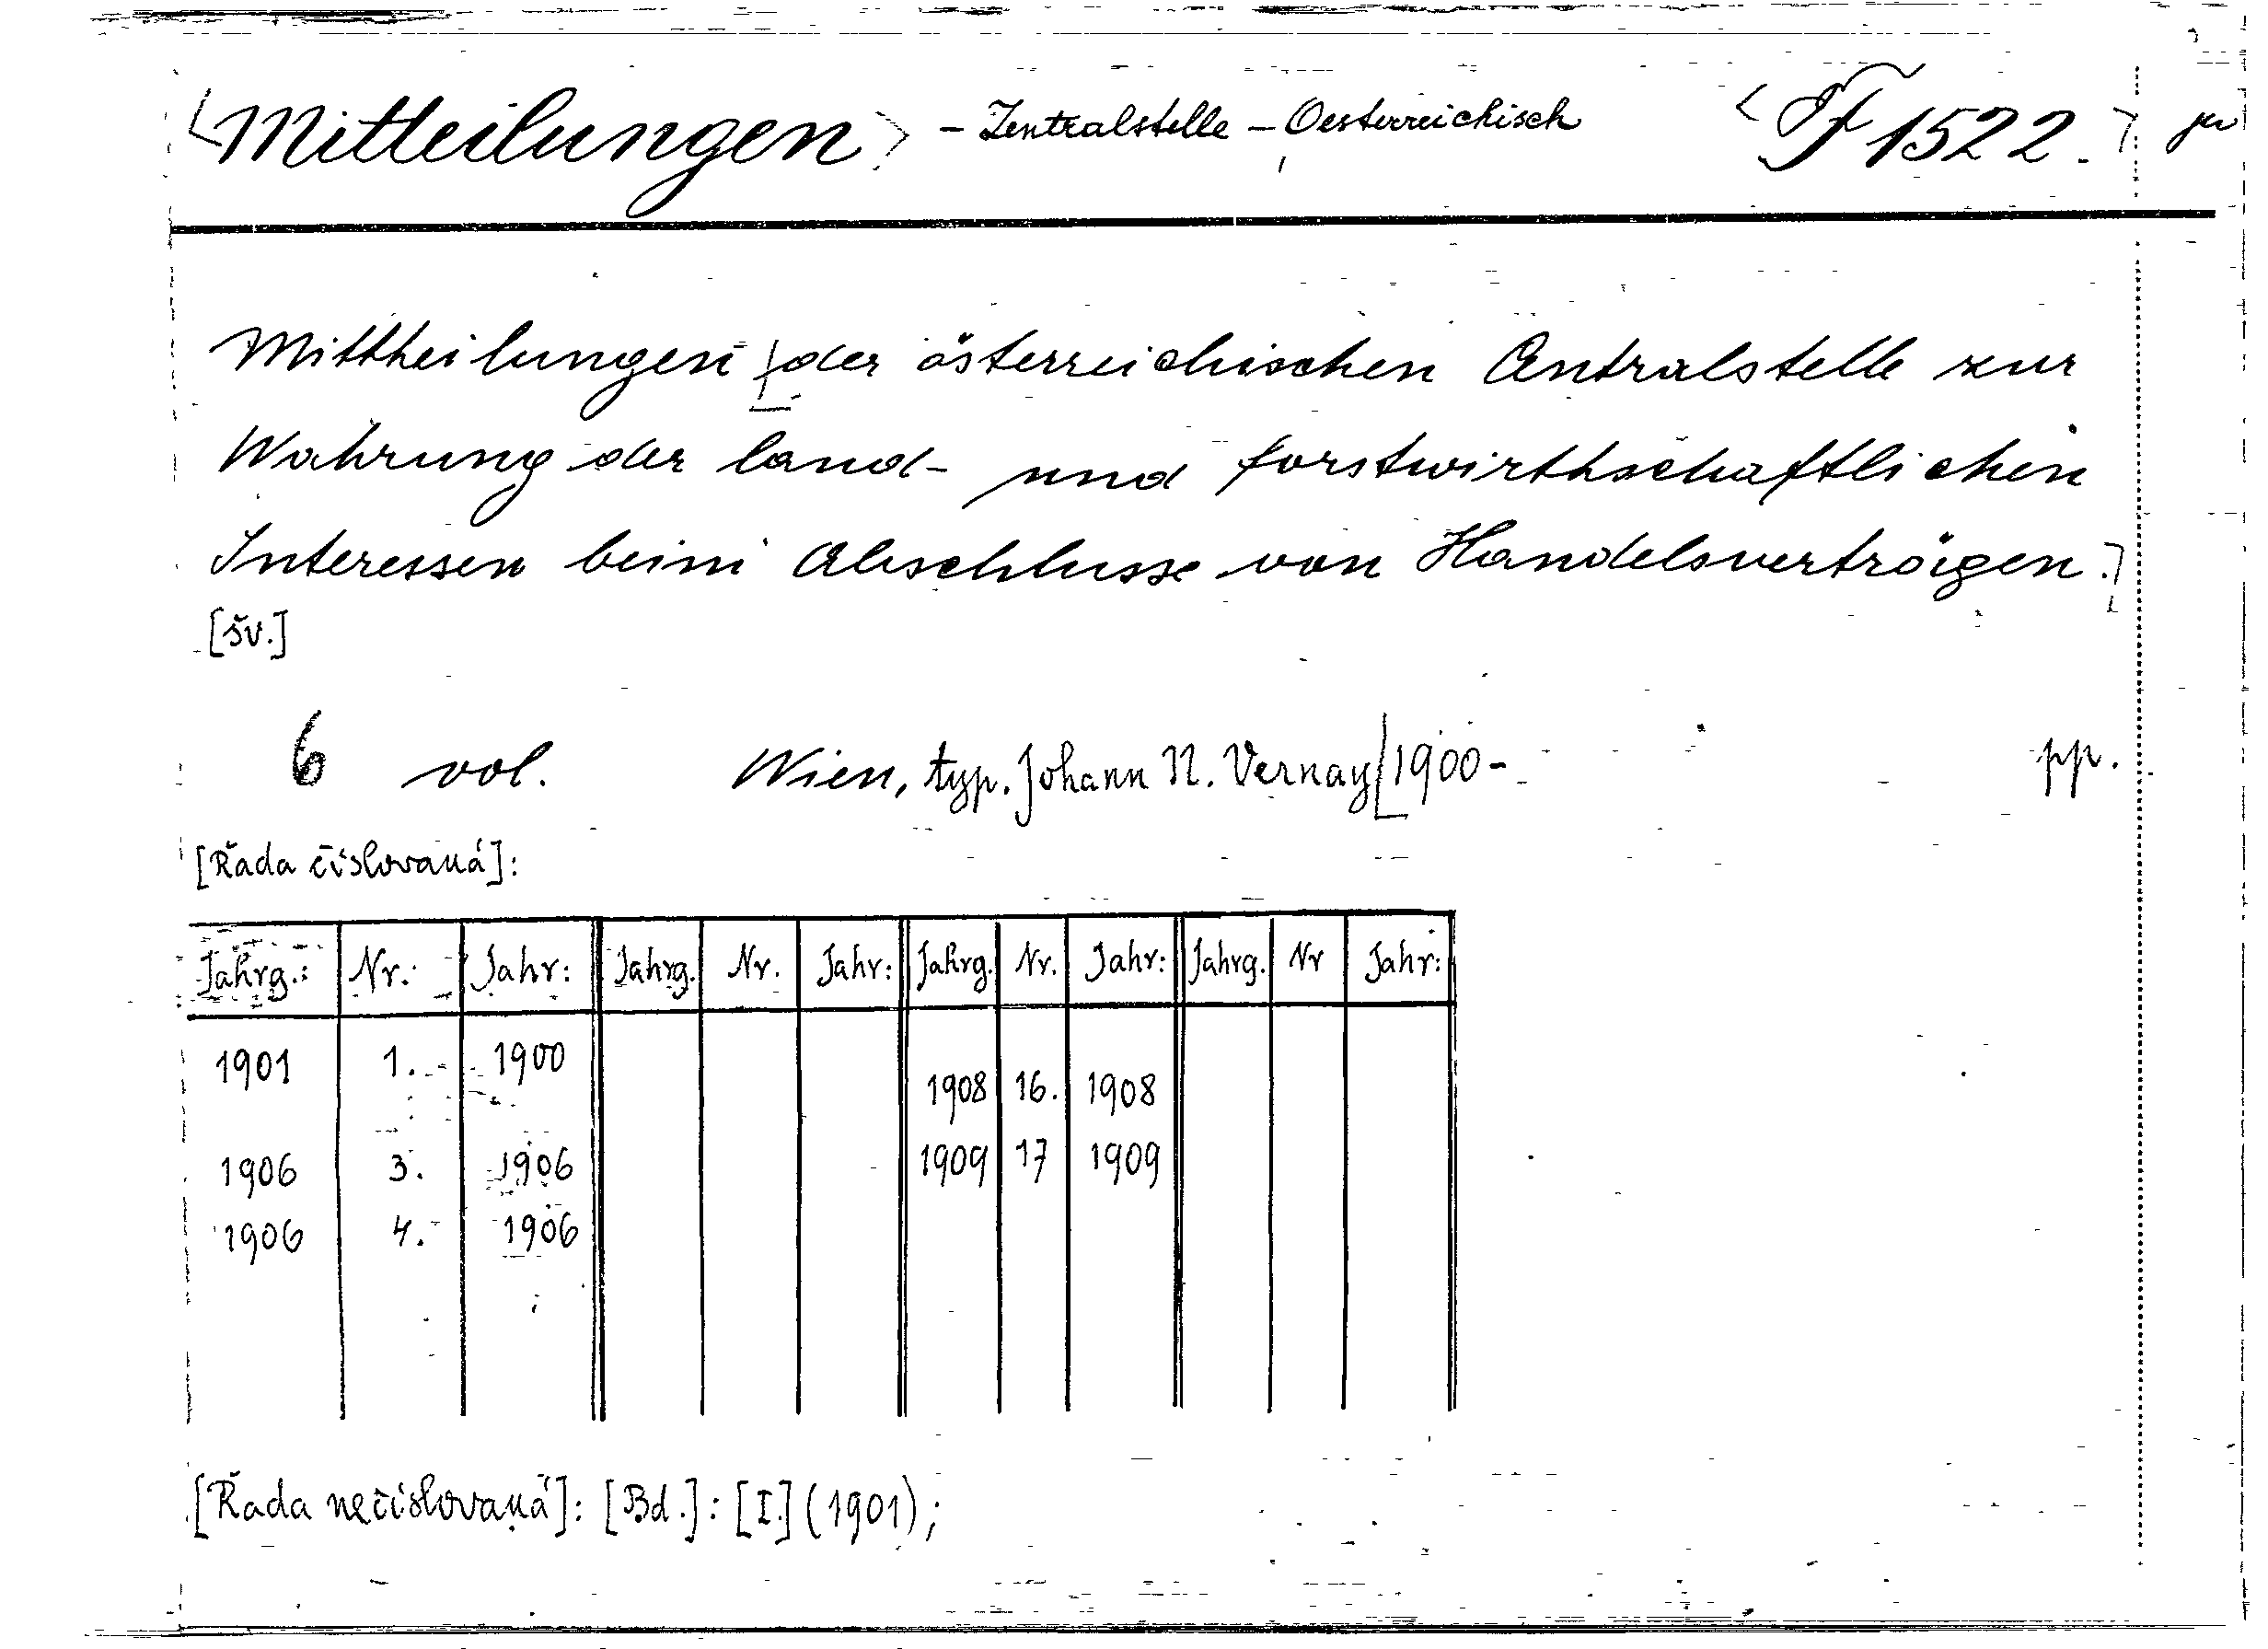 <Mitteilungen> - Zentralstelle - Oesterreichisch <F 1522.>
Mittheilungen der österreichischen Centralstelle zur
Wahrung der land- und forstwirthschaftlichen
Interessen beim Abschlusse von Handelsverträgen.
[sv.]
6 vol. Wien, typ. Johann N. Vernay [1900- pp.
[Řada číslovaná]:
Jahrg.: Nr. Jahr: Jahrg. Nr. Jahr: Jahrg. Nr. Jahr: Jahrg. Nr Jahr:
1901 1. 1900
1908 16. 1908
1906 3. 1906 1909 17 1909
1906 4. 1906
[Řada nečíslovaná]: [Bd.]: [I.] (1901);